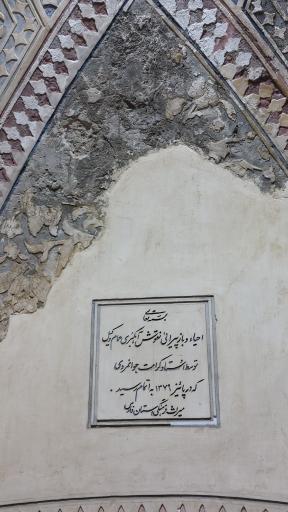 بسمه تعالی
احیاء و باز پیرائی نقوش آهکبری حمام وکیل
توسط استاد کرامت جوانمردی
که در پائیز ۱۳۷۶ به اتمام رسید .
میراث فرهنگی استان فارس